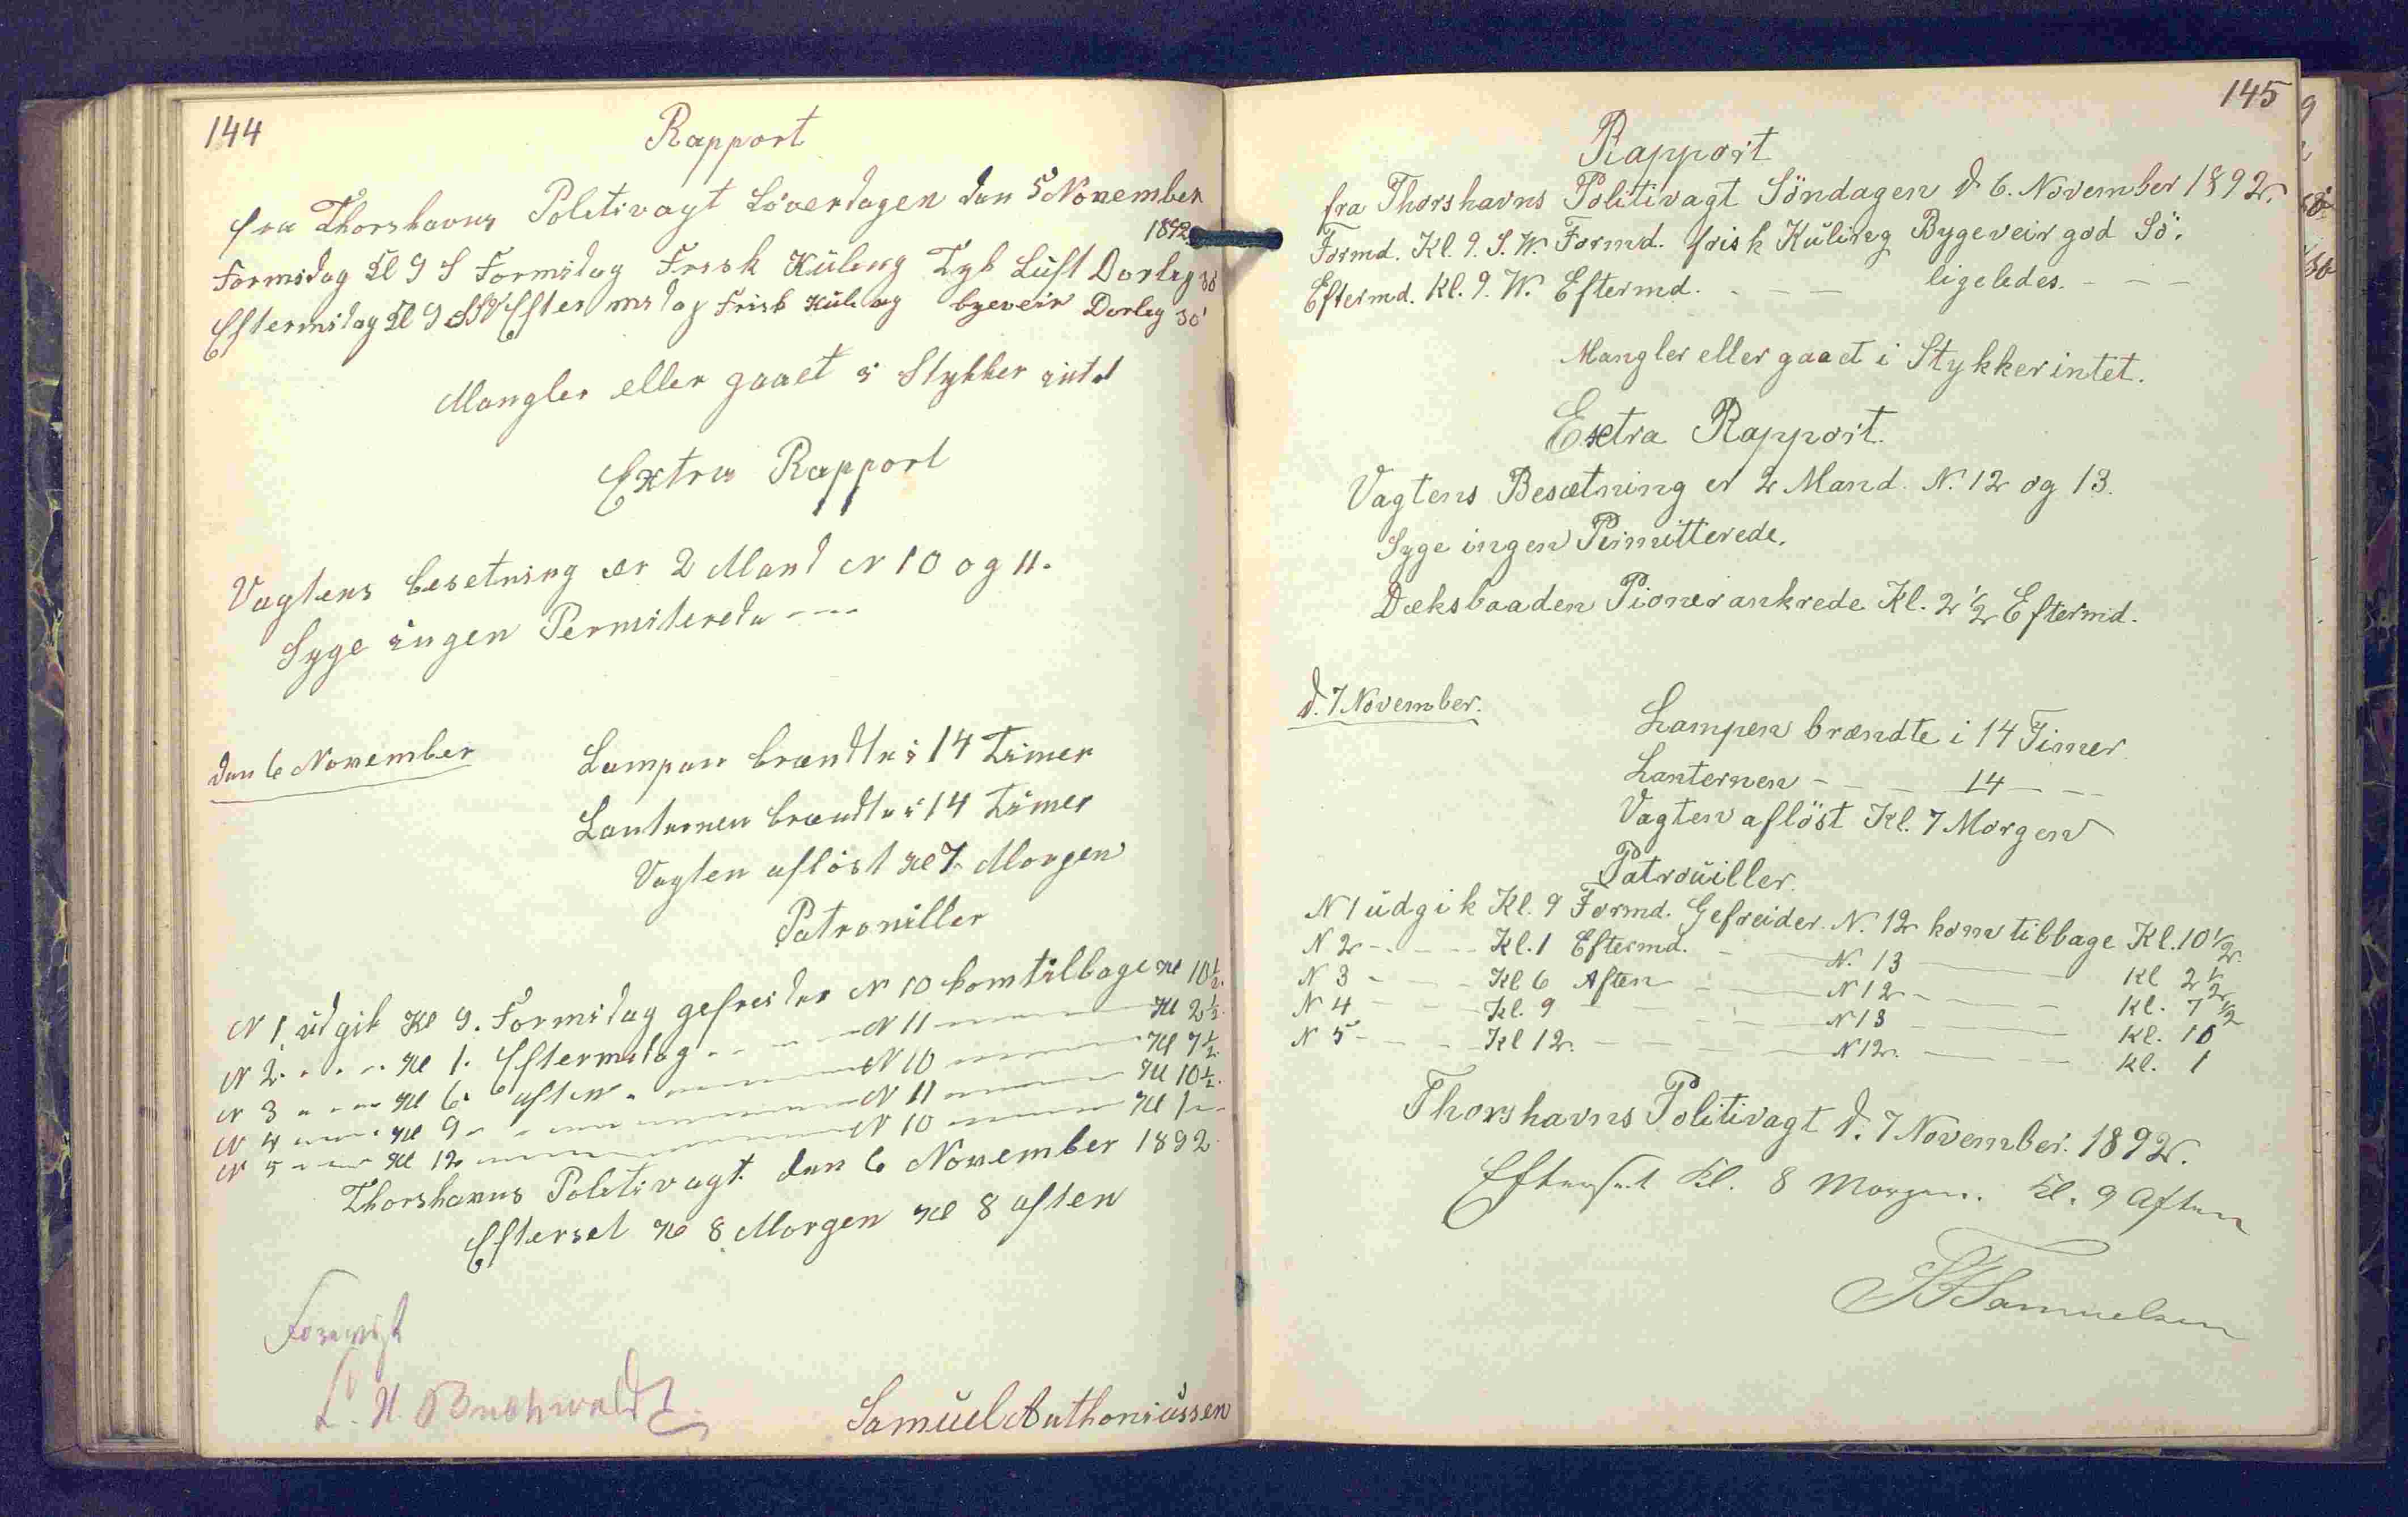 144
Rapport
fra Thorshavns Politivagt Löverdagen den 5 November
1892
Formidag Kl 9 S Formidag Frisk Kuling Tyk Luft Dorleg 30
Eftermidag Kl 9 SW Eftermidag Frisk Kuling bygeveir Dorleg 30
Mangler eller gaaet i Stykker intet
Extra Rapport
Vagtens besetning er 2 Mand N 10 og 11.
Syge ingen Permiterede
den 6 November
Lampen brændte i 14 Timer
Lanternen brændte i 14 Timer
Vagten aflöst Kl 7. Morgen
Patrouiller
N 1. udgik Kl 9. Formidag gefreider N 10 kom tilbage Kl 10½.
N 2. - - - Kl 1. Eftermidag - - - N 11 - - - Kl 2½.
N 3 - - - Kl 6. aften - - - N 10 - - - Kl 7½.
N 4 - - - Kl 9 - - - N 11 - - - Kl 10½.
N 5 - - - Kl 12 - - - N 10 - - - Kl 1 - -
Thorshavns Politivagt. den 6 November 1892
Efterset Kl 8 Morgen Kl 8 aften
Forevist
Buchwaldt
Samuel Anthoniussen
145
Rapport
fra Thorshavns Politivagt Söndagen d. 6. November 1892.
Formd. Kl. 9. S.W. Formd. frisk Kuling Bygeveir god Sö.
Eftermd. Kl. 9. W. Eftermd. - - - ligeledes. - - -
Mangler eller gaaet i Stykker intet.
Extra Rapport.
Vagtens Besætning er 2 Mand. N. 12 og 13.
Syge ingen Permitterede.
Dæksbaaden Pioner ankrede Kl. 2½ Eftermd.
d. 7 November.
Lampen brændte i 14 Timer.
Lanternen - - - 14 - - -
Vagten aflöst Kl. 7 Morgen
Patrouiller.
N 1 udgik Kl. 9 Formd. Gefreider. N. 12 kom tilbage Kl. 10½.
N 2 - - - Kl. 1 Eftermd. - - - N. 13 - - - Kl 2½
N 3 - - - Kl 6 Aften - - - N 12 - - - Kl. 7½
N 4 - - - Kl. 9 - - - N 13 - - - Kl. 10
N 5 - - - Kl 12. - - - N 12. - - - Kl. 1
Thorshavns Politivagt d. 7 November. 1892.
Efterset Kl. 8 Morgen. Kl. 9 Aften
Samuelsen